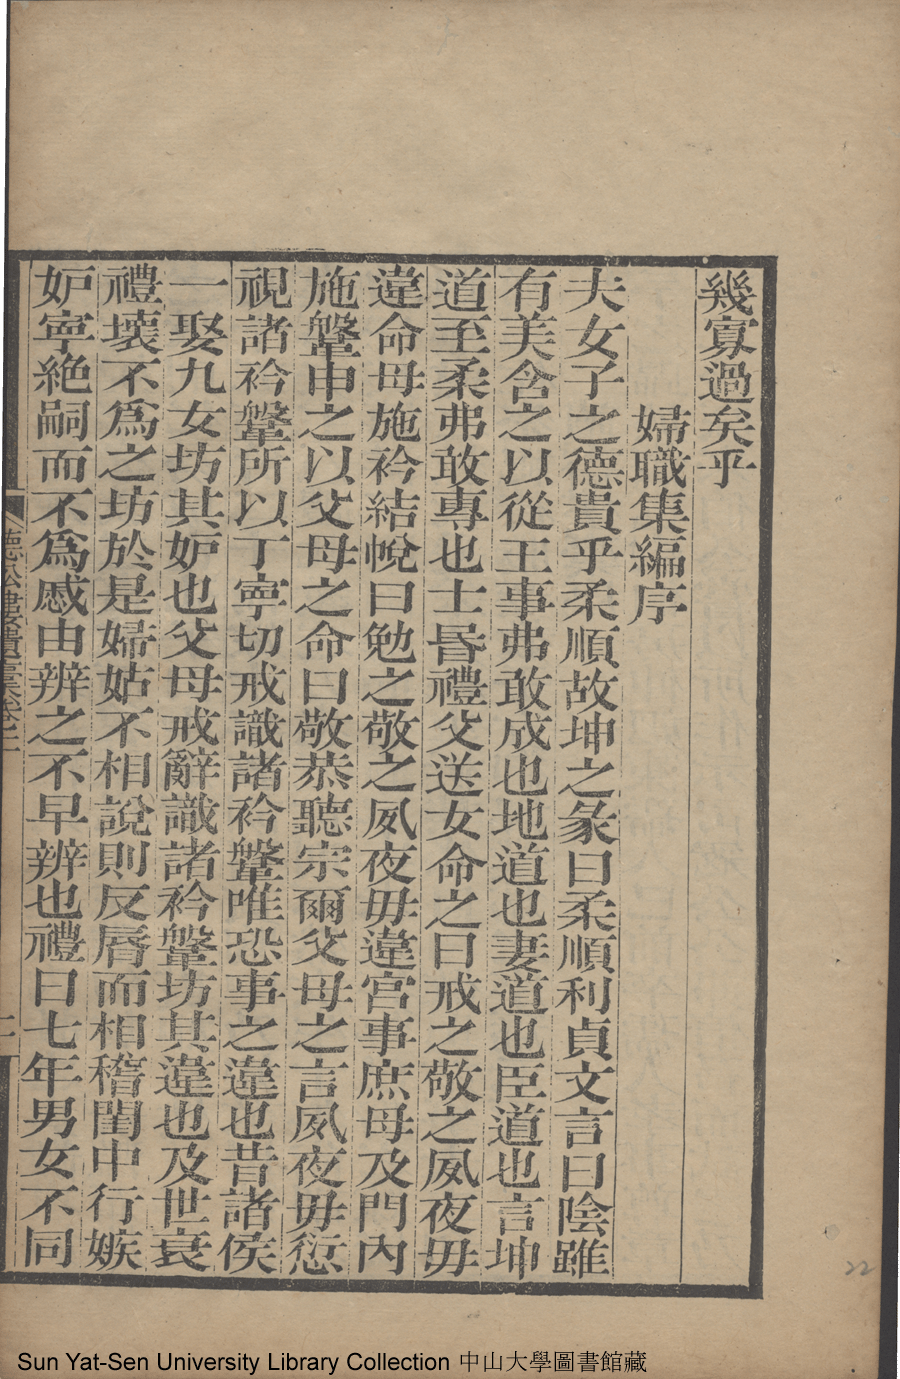 幾寡過矣乎
婦職集編序
夫女子之德貴乎柔順故坤之彖曰柔順利貞文言曰陰雖
有美含之以從王事弗敢成也地道也妻道也臣道也言坤
道至柔弗敢專也士昏禮父送女命之曰戒之敬之夙夜毋
違命母施衿結帨曰勉之敬之夙夜毋違宮事庶母及門內
施鞶申之以父母之命曰敬恭聽宗爾父母之言夙夜毋愆
視諸衿鞶所以丁寧切戒識諸衿鞶唯恐事之違也昔諸侯
一娶九女坊其妒也父母戒辭識諸衿鞶坊其違也及世衰
禮壞不爲之坊於是婦姑不相說則反唇而相稽閨中行嫉
妒寧絶嗣而不爲慼由辨之不早辨也禮曰七年男女不同
22
Sun Yat-Sen University Library Collection 中山大學圖書館藏